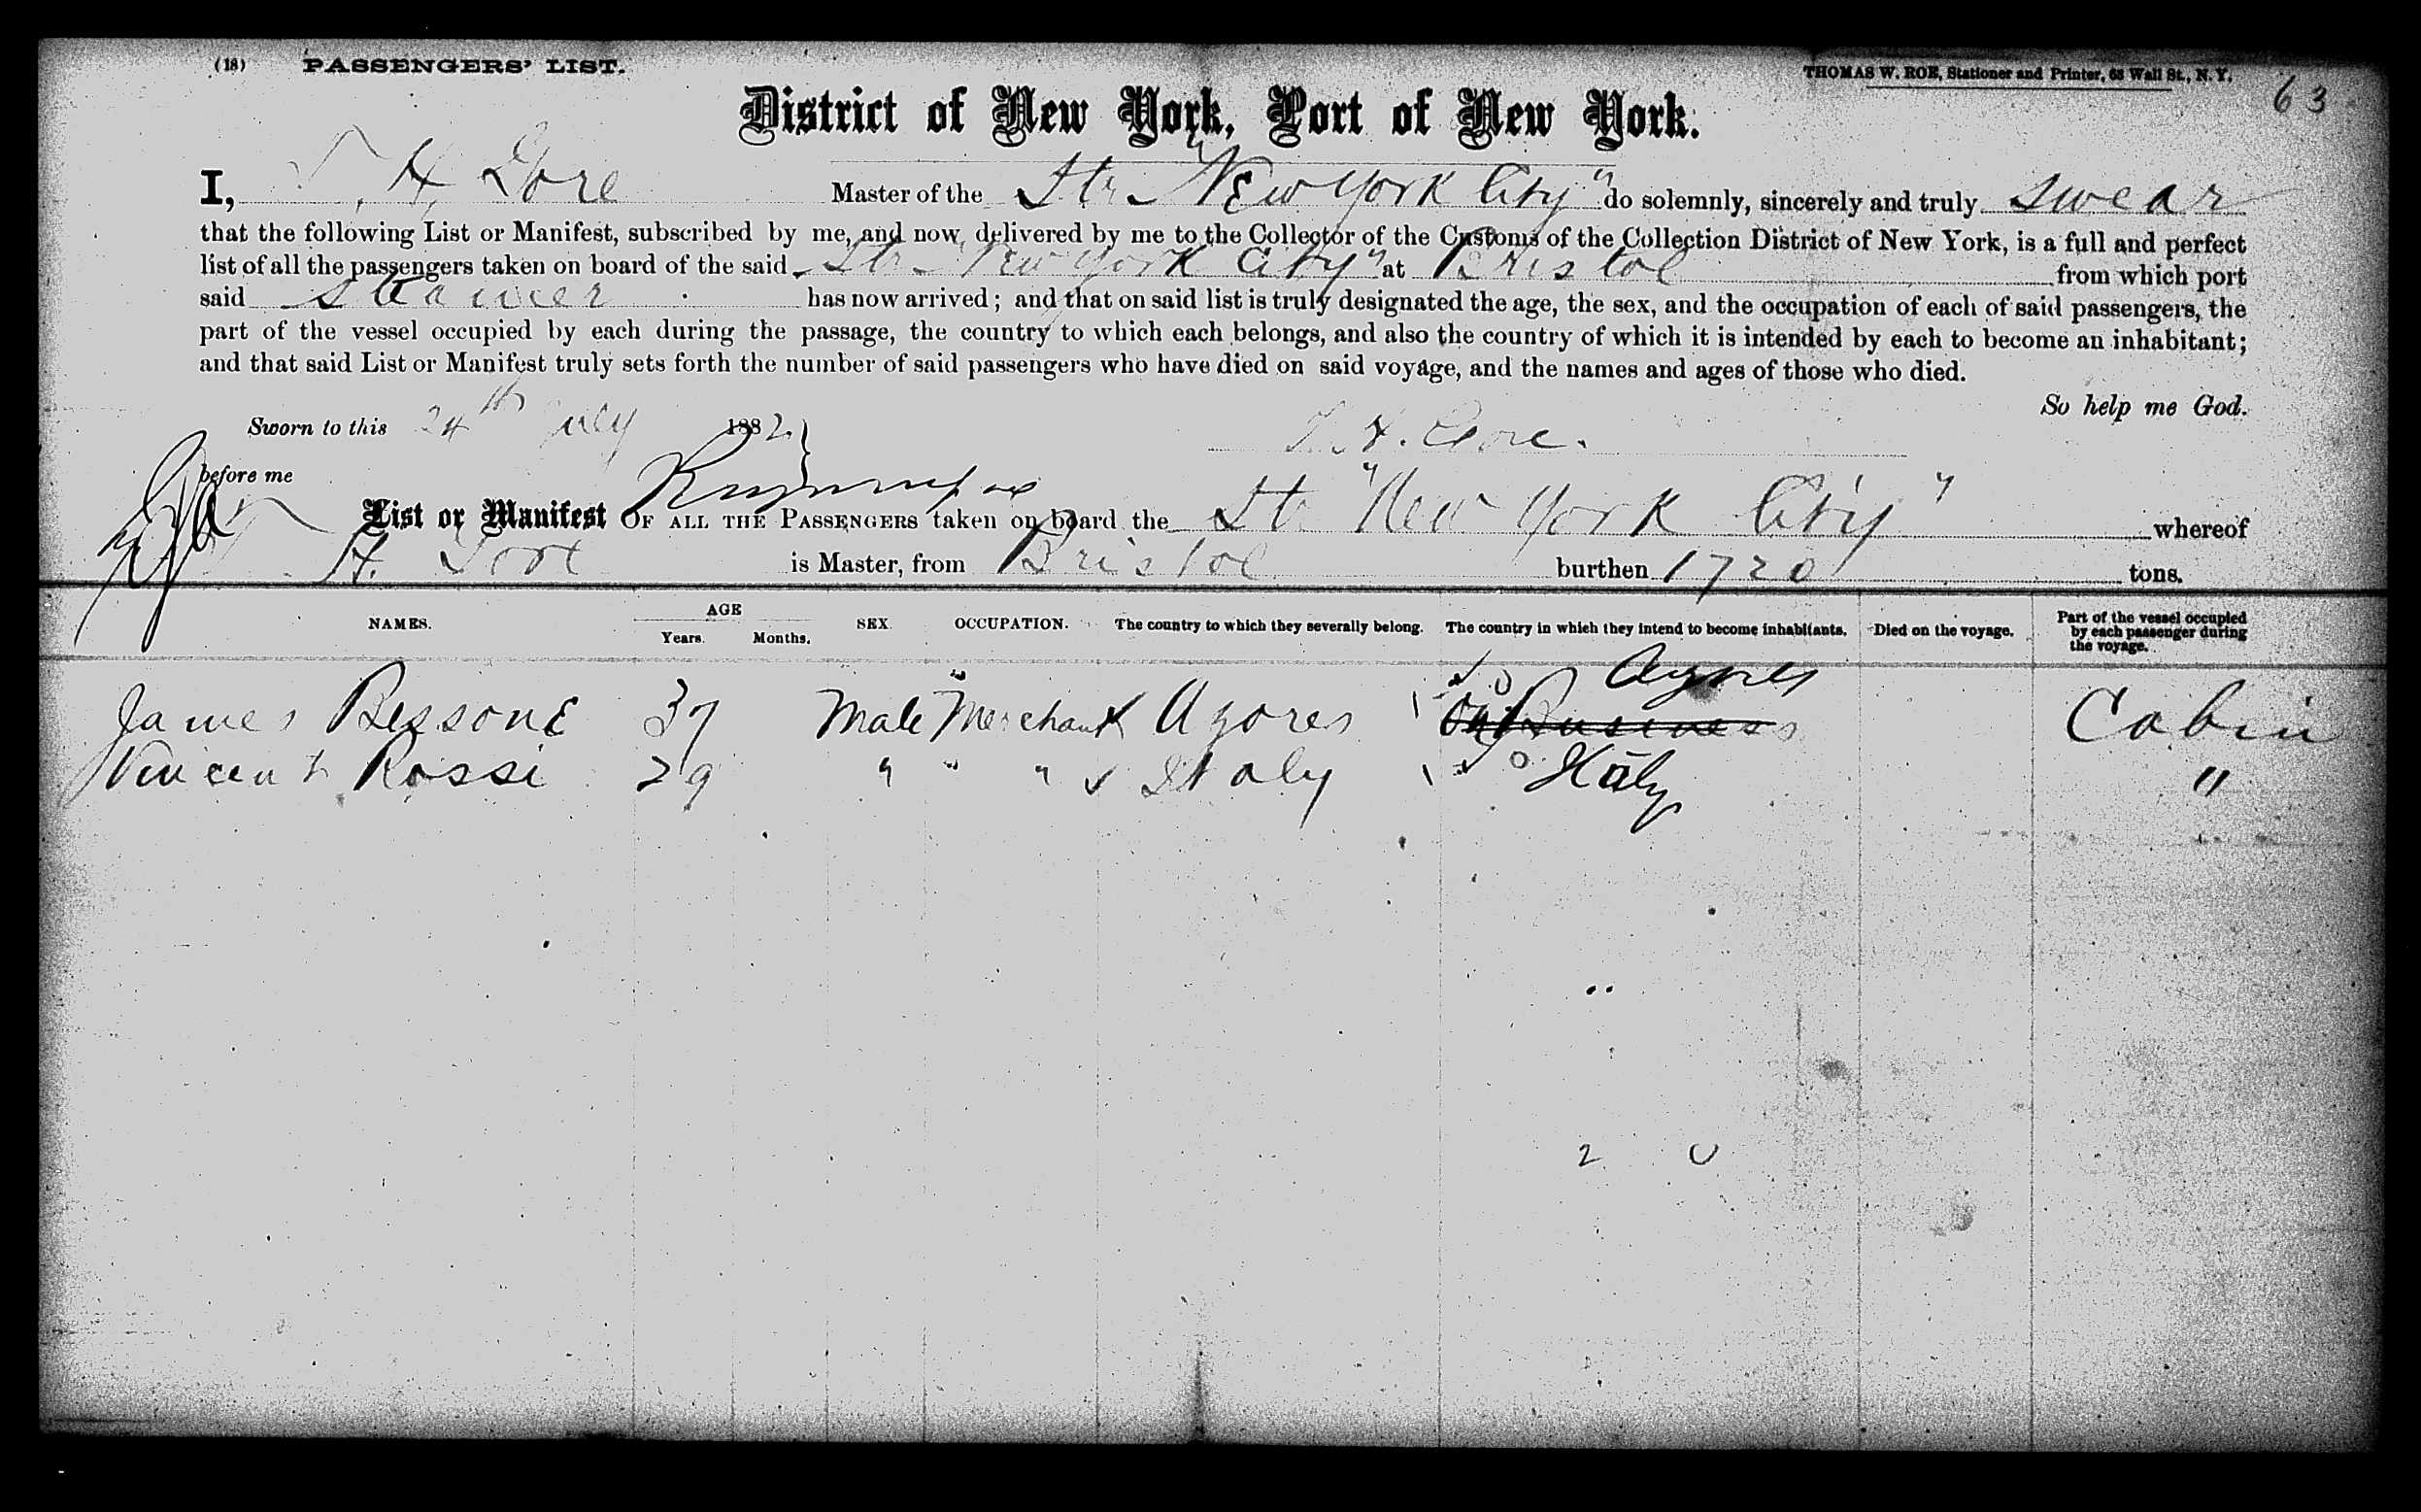 (18) PASSENGERS' LIST.
THOMAS W. ROE, Stationer and Printer, 63 Wall St., N. Y.
63
District of New York, Port of New York.
I, T. H. Gore Master of the Str "New York City" do solemnly, sincerely and truly swear
that the following List or Manifest, subscribed by me, and now delivered by me to the Collector of the Customs of the Collection District of New York, is a full and perfect
list of all the passengers taken on board of the said Str "New York City" at Bristol from which port
said steamer has now arrived; and that on said list is truly designated the age, the sex, and the occupation of each of said passengers, the
part of the vessel occupied by each during the passage, the country to which each belongs, and also the country of which it is intended by each to become an inhabitant;
and that said List or Manifest truly sets forth the number of said passengers who have died on said voyage, and the names and ages of those who died.
So help me God.
Sworn to this 24th July 1882. T. H. Gore.
before me
List or Manifest OF ALL THE PASSENGERS taken on board the Str "New York City" whereof
T. H. Gore is Master, from Bristol burthen 1720 tons.
NAMES. AGE Years. Months. SEX. OCCUPATION. The country to which they severally belong. The country in which they intend to become inhabitants. Died on the voyage. Part of the vessel occupied by each passenger during the voyage.
James Bessone 37 Male Merchant Azores On Business Cabin
Vincent Rossi 29 " " " Italy Italy "
2 0